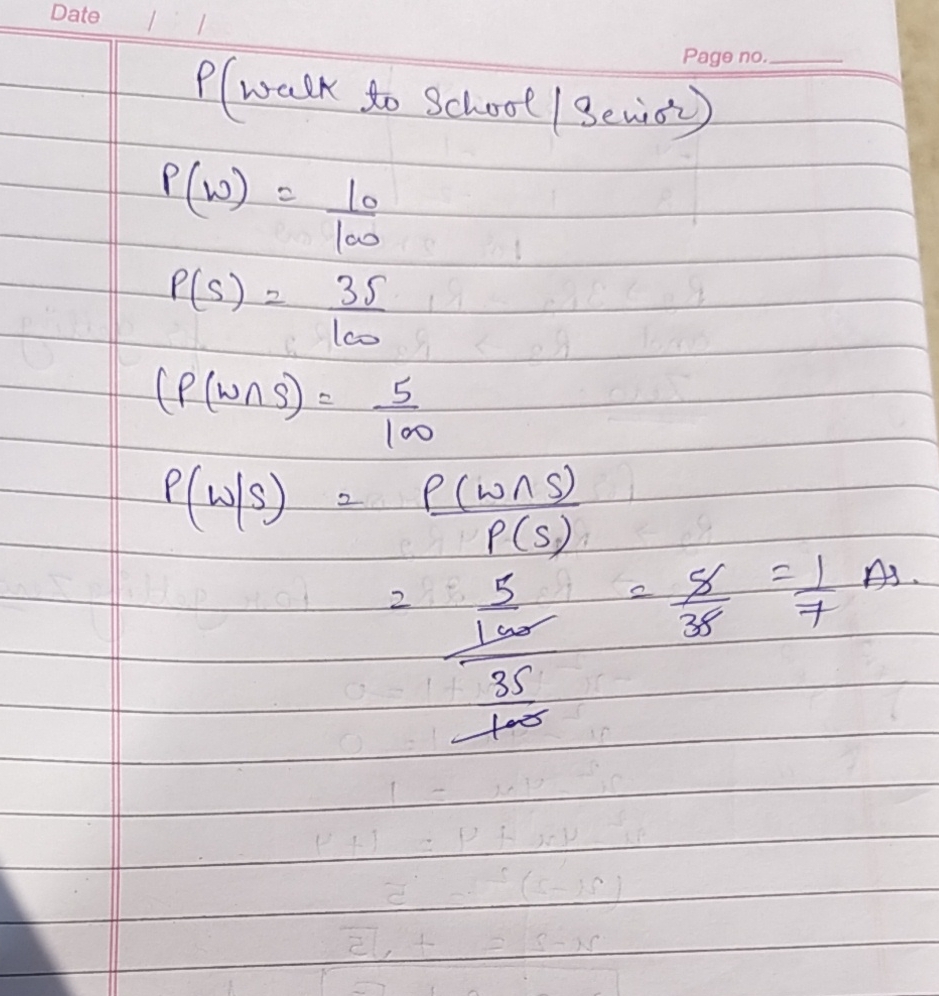 Date / /
Page no.
P(walk to School | Senior)
P(W) = 10/100
P(S) = 35/100
(P(W∩S) = 5/100
P(W|S) = P(W∩S)/P(S)
= 5/100 / 35/100 = 5/35 = 1/7 As.